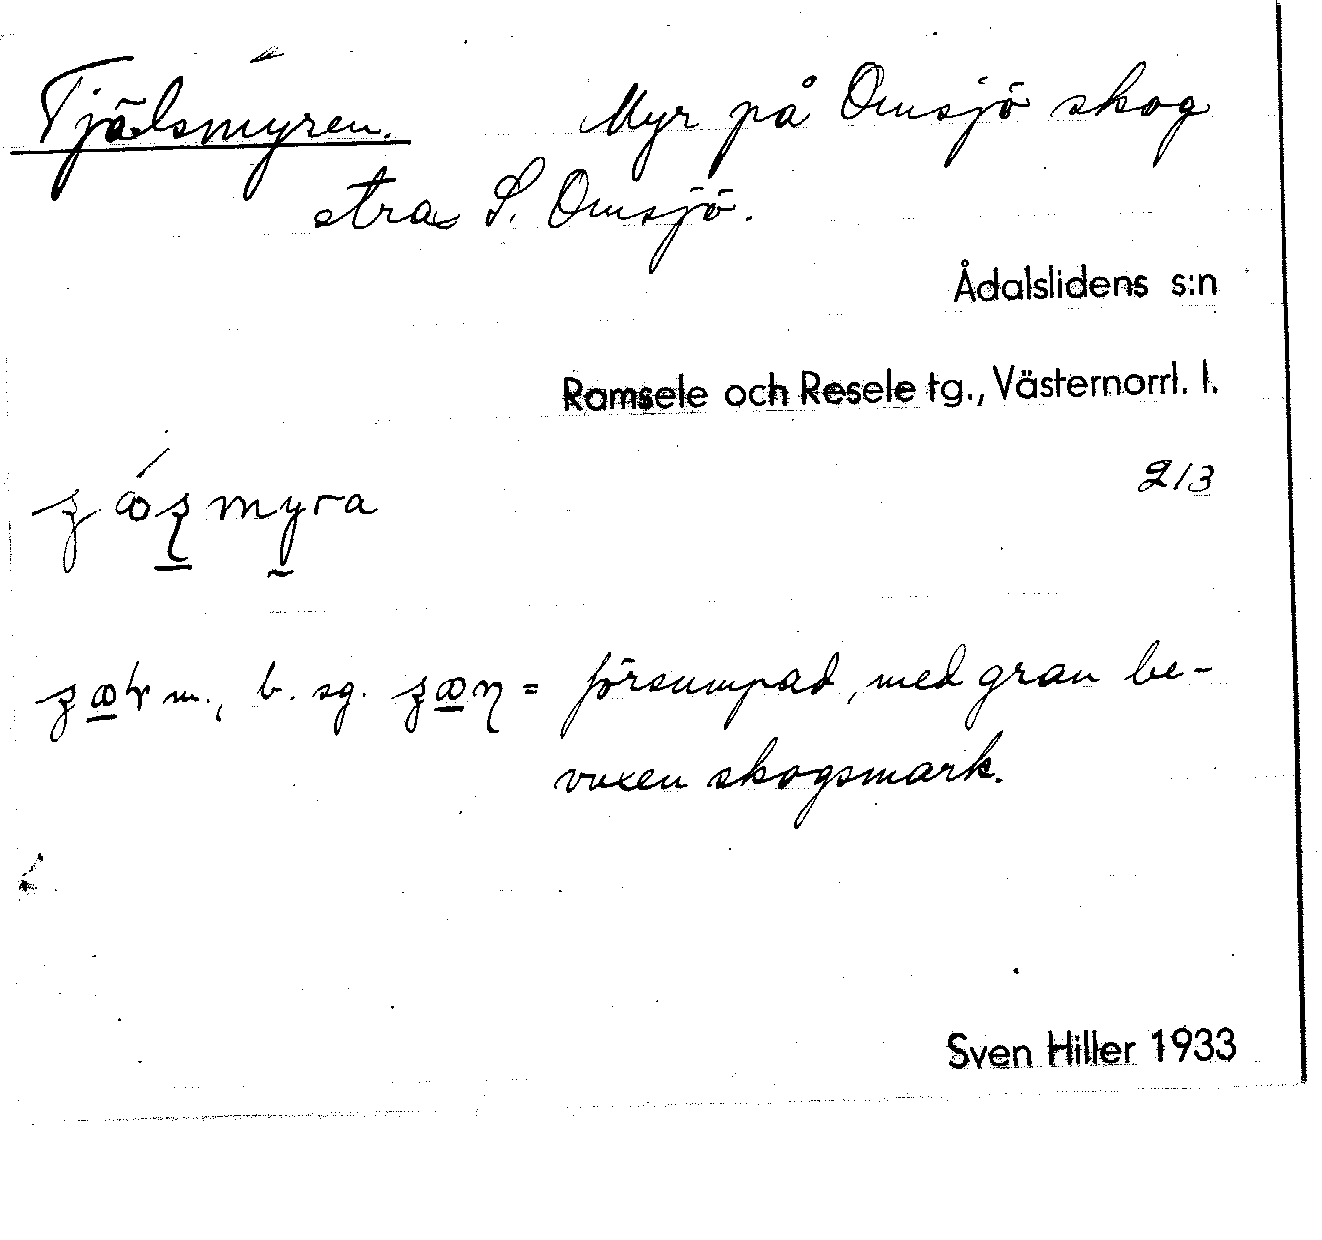 Tjälsmyren. Myr på Omsjö skog
str S. Omsjö.
Ådalslidens s:n
Ramsele och Resele tg., Västernorrl. l.
213
myra
m., b. sg. = försumpad, med gran be-
vuxen skogsmark.
Sven Hiller 1933